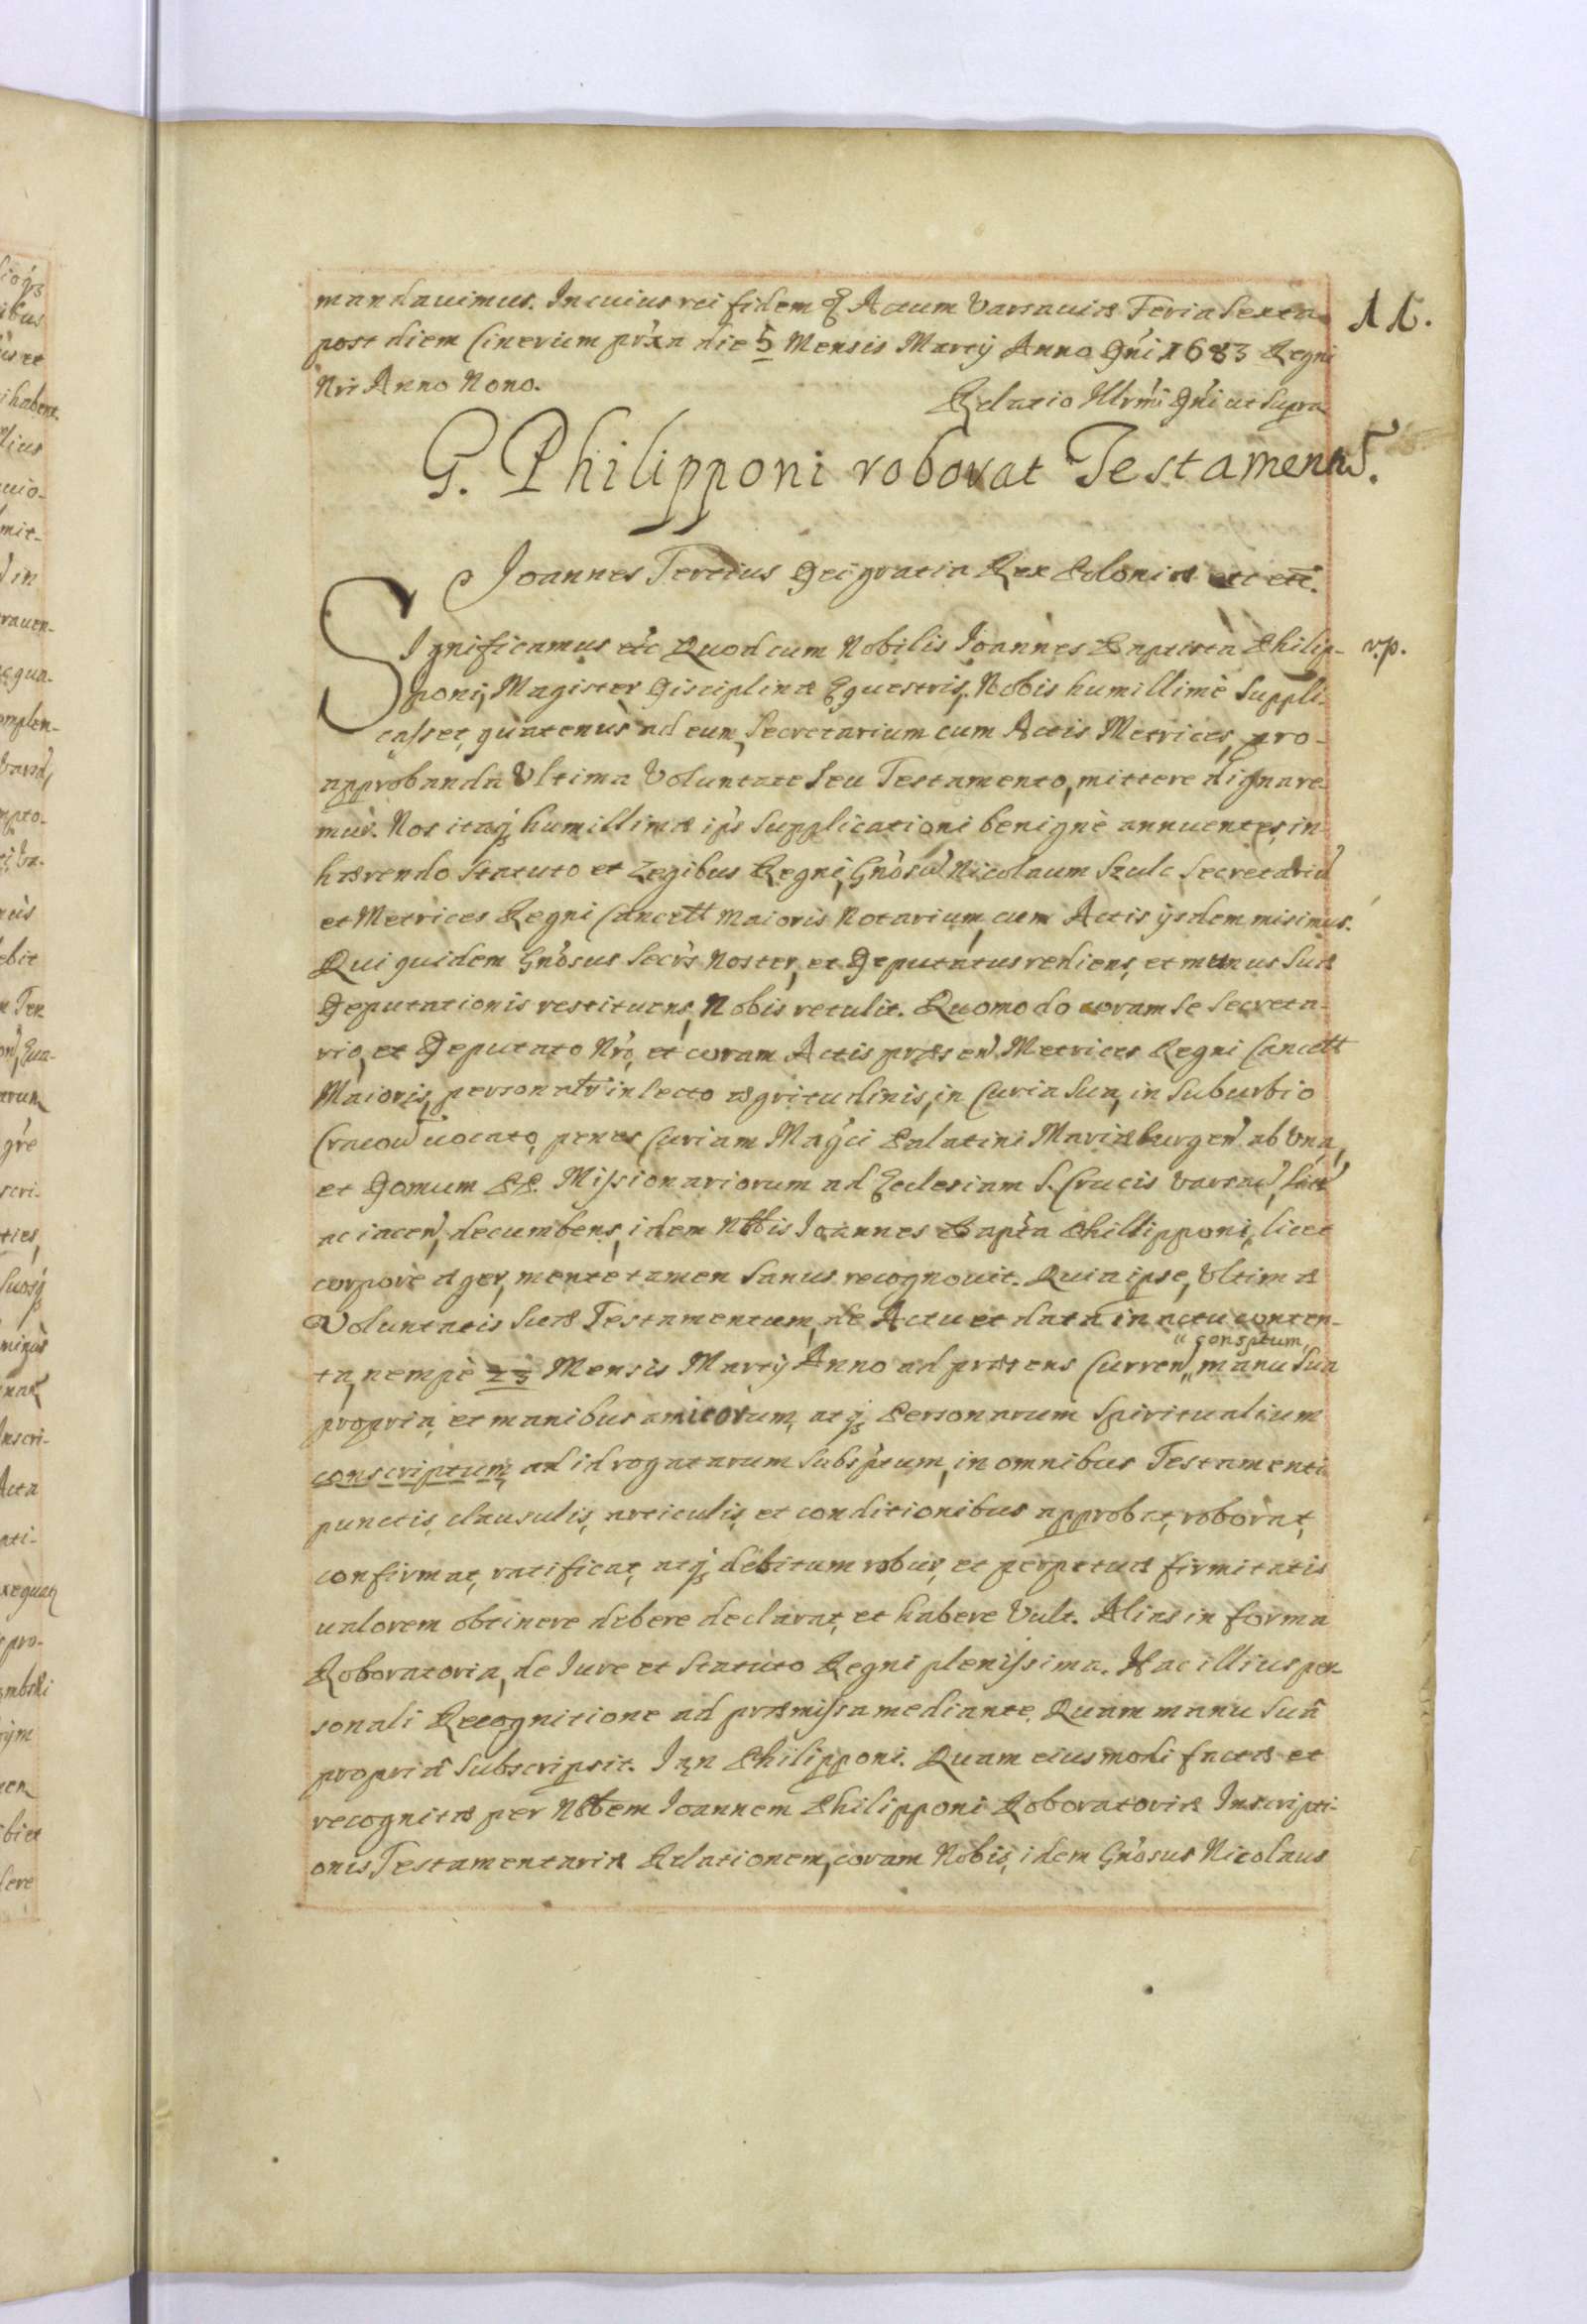 mandauimus. In cuius rei fidem & Actum Varsauiæ Feria Sexta
11.
post diem Cinerum prxa die 5 Mensis Martij Anno Dni 1683 Regni
Nri Anno Nono.
Relatio Illrmi Dni ut supra
G. Philipponi roborat Testament.
Joannes Tertius Dei gratia Rex Poloniæ etc etc.
Significamus etc Quod cum Nobilis Joannes Baptista Philip-
v.p.
poni, Magister Disciplinæ Equestris, Nobis humillimè suppli-
casset, quatenus ad eum, Secretarium cum Actis Metrices, pro
approbanda Ultima Voluntate seu Testamento, mittere dignare-
mur. Nos itaq humillimæ ips supplicationi benignè annuentes, in-
hærendo Statuto et Legibus Regni, Gnosu Nicolaum Szulc Secretariu
et Metrices Regni Cancell Maioris Notarium, cum Actis ijsdem misimus.
Qui quidem Gnosus Secrs Noster, et Deputatus rediens, et munus suæ
Deputationis restituens, Nobis retulit. Quomodo coram se Secreta-
rio, et Deputato Nro, et coram Actis præsen Metrices Regni Cancell
Maioris, personaltr in lecto ægritudinis, in Curia sua, in suburbio
Cracow uocato, penes Curiam Magci Palatini Mariæburgen ab una,
et Domum PP. Missionariorum ad Ecclesiam S. Crucis Varsau, sit
ac iacen, decumbens, idem Nblis Joannes Bapta Phillipponi, licet
corpore æger, mente tamen sanus recognouit. Quia ipse, Ultimæ
Voluntatis suæ Testamentum, de Actu et data in actu conten-
consptum
ta, nempè 23 Mensis Martij Anno ad præsens Curren, manu sua
propria, et manibus amicorum, atq Personarum Spiritualium
conscriptum, ad id rogatarum subsptum, in omnibus Testamenti
punctis, clausulis, articulis, et conditionibus approbat, roborat,
confirmat, ratificat, atq debitum robur, et perpetuæ firmitatis
ualorem obtinere debere declarat, et habere Vult. Alias in forma
Roboratoria, de Jure et Statuto Regni plenissima. Hac illius per-
sonali Recognitione ad præmissa mediante. Quam manu suâ
propriâ subscripsit. Jan Philipponi. Quam eiusmodi factæ et
recognitæ per Nblem Joannem Philipponi Roboratoriæ Inscripti-
onis, Testamentariæ Relationem, coram Nobis, idem Gnosus Nicolaus